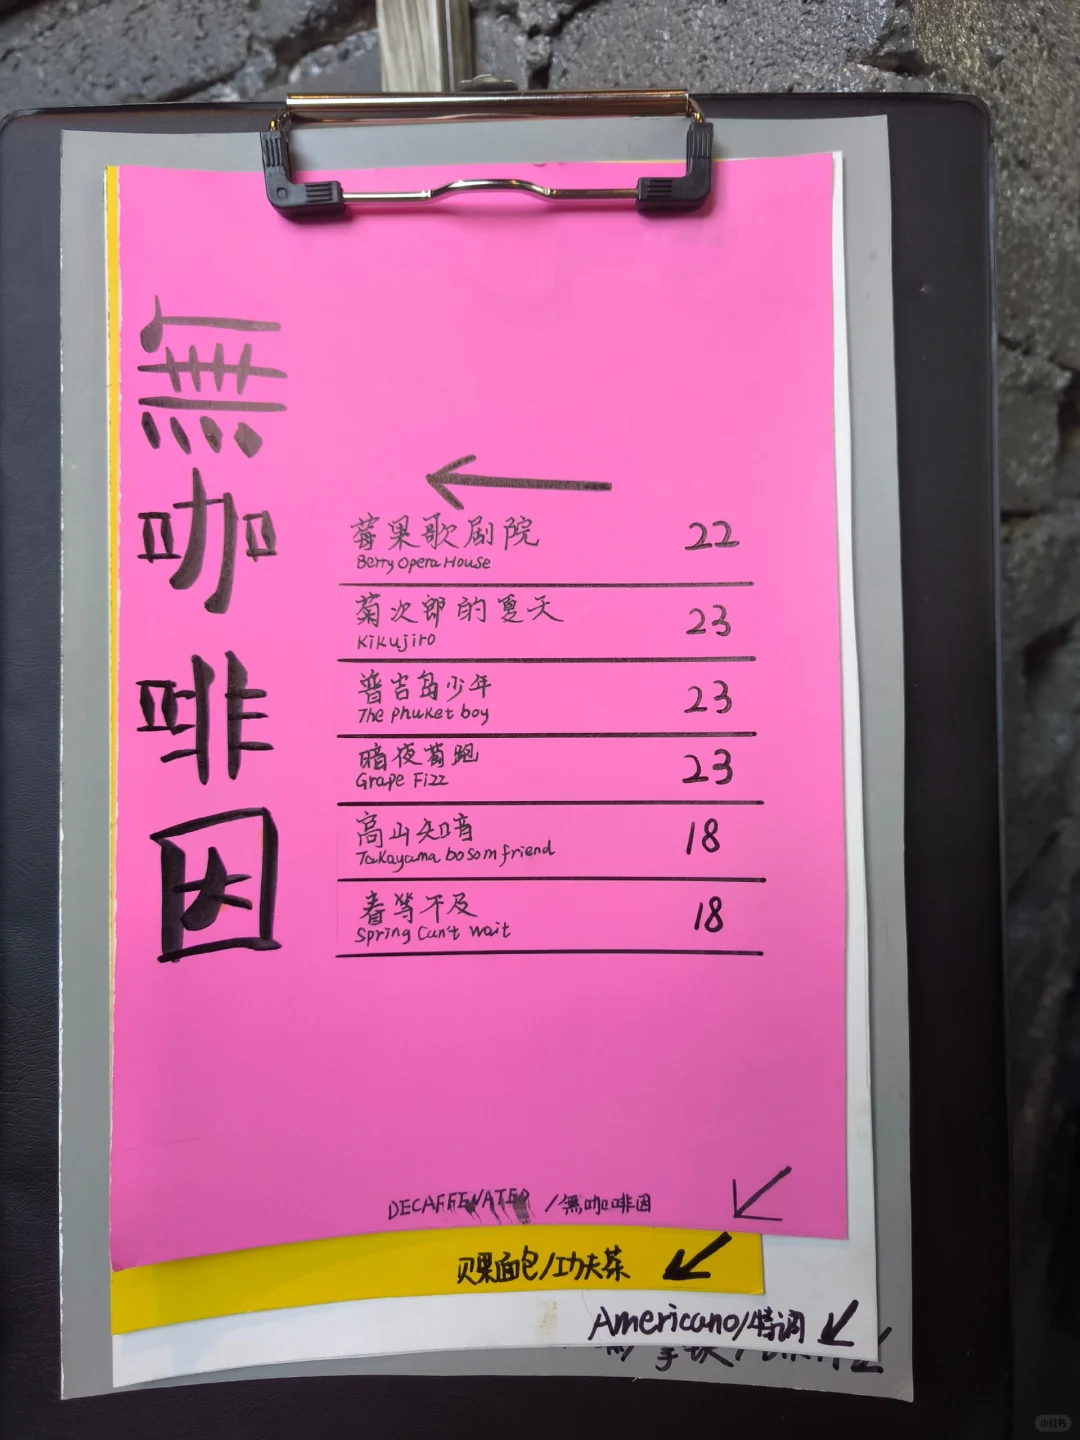 無咖啡因
莓果歌剧院 22
Berry Opera House
菊次郎的夏天 23
Kikujiro
普吉岛少年 23
The Phuket boy
暗夜萄跑 23
Grape Fizz
高山知音 18
Takayama bosom friend
春等不及 18
Spring Can't wait
DECAFFEINATED /無咖啡因
贝果面包/功夫茶
Americano/特调
小红书